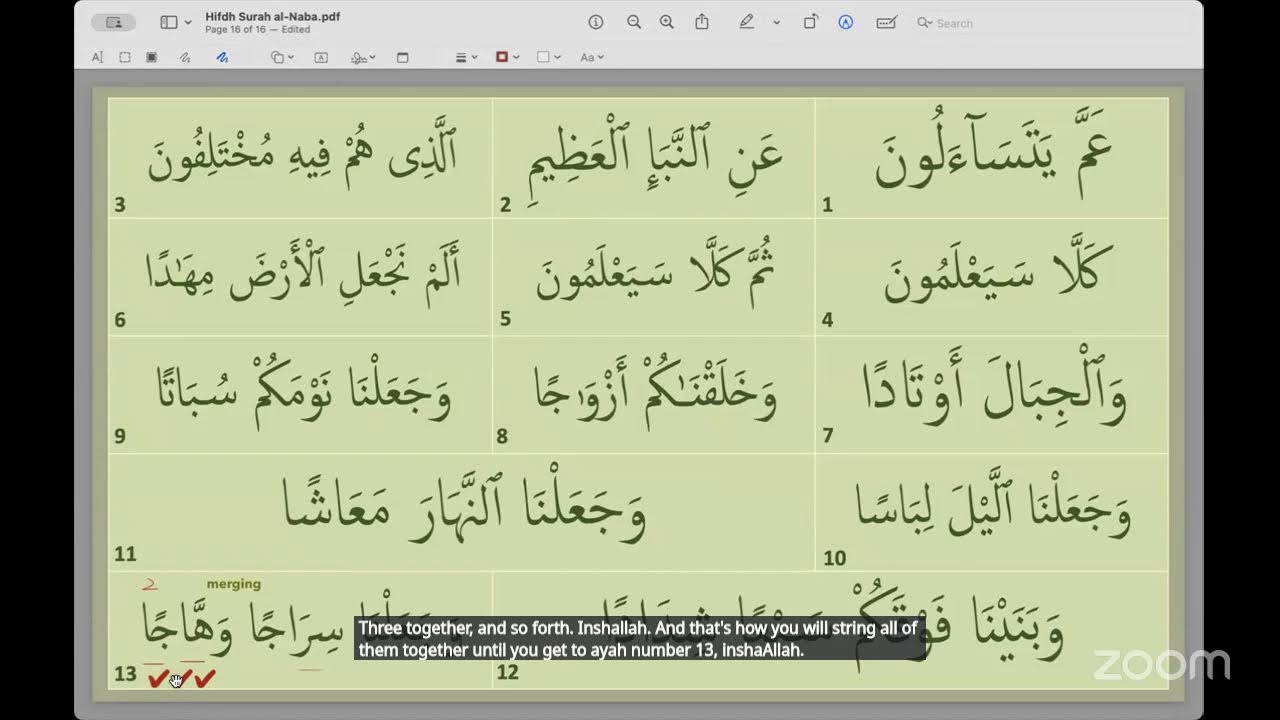 Hifdh Surah al-Naba.pdf
Page 16 of 16 — Edited
Search
Aa
عَمَّ يَتَسَآءَلُونَ
1
عَنِ ٱلنَّبَإِ ٱلْعَظِيمِ
2
ٱلَّذِى هُمْ فِيهِ مُخْتَلِفُونَ
3
كَلَّا سَيَعْلَمُونَ
4
ثُمَّ كَلَّا سَيَعْلَمُونَ
5
أَلَمْ نَجْعَلِ ٱلْأَرْضَ مِهَـٰدًا
6
وَٱلْجِبَالَ أَوْتَادًا
7
وَخَلَقْنَـٰكُمْ أَزْوَٰجًا
8
وَجَعَلْنَا نَوْمَكُمْ سُبَاتًا
9
وَجَعَلْنَا ٱلَّيْلَ لِبَاسًا
10
وَجَعَلْنَا ٱلنَّهَارَ مَعَاشًا
11
وَبَنَيْنَا فَوْقَكُمْ
12
2 merging
سِرَاجًا وَهَّاجًا
13
Three together, and so forth. Inshallah. And that's how you will string all of
them together until you get to ayah number 13, inshaAllah.
zoom